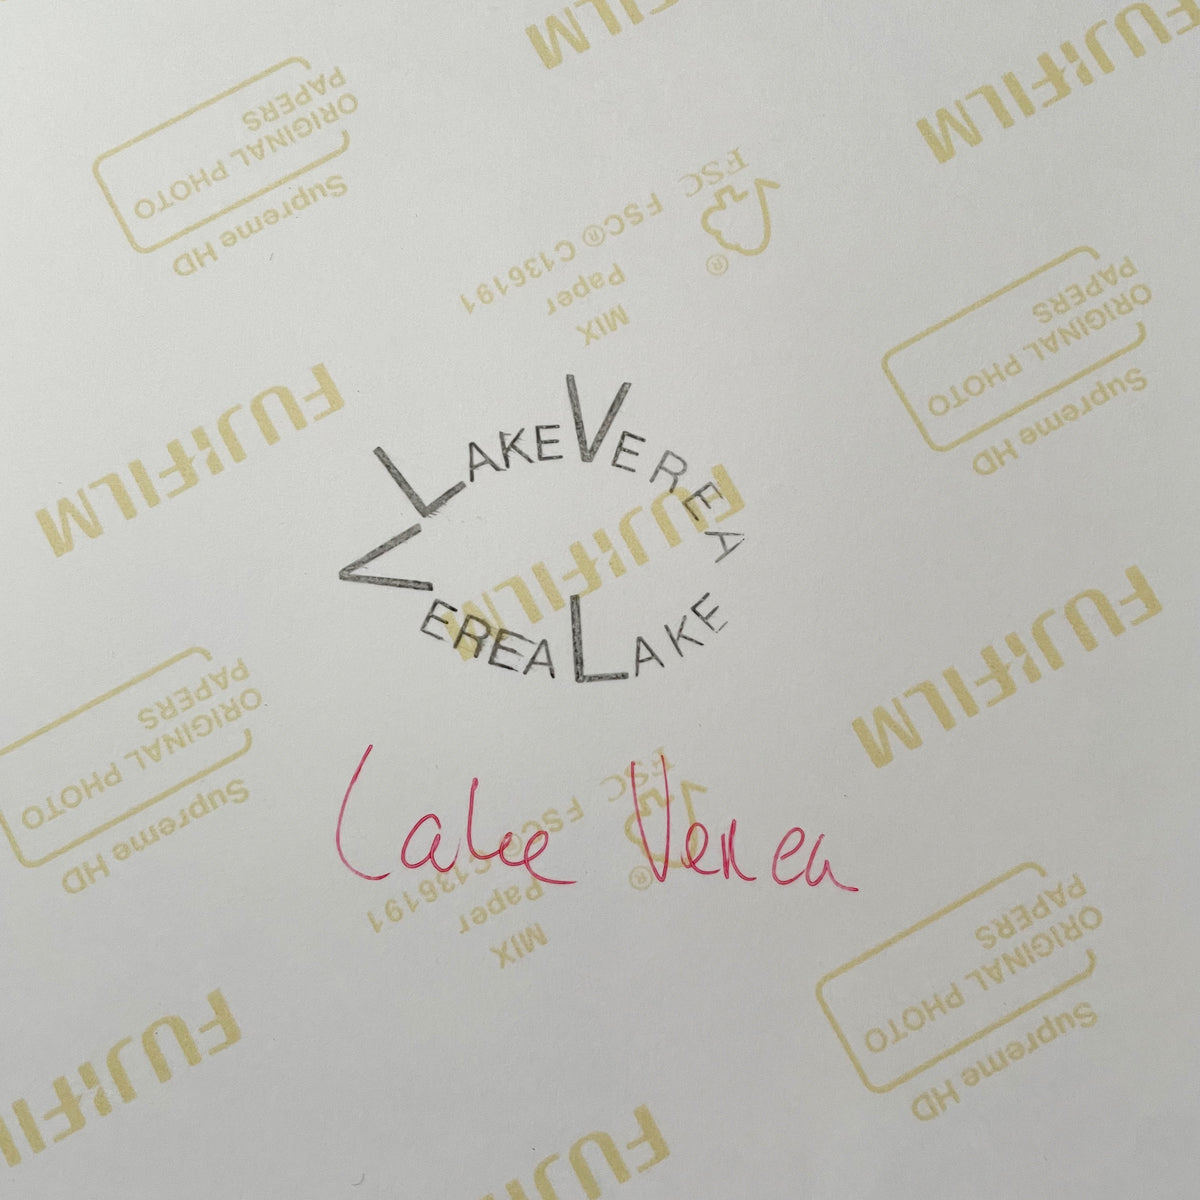 FUJIFILM
FUJIFILM
ORIGINAL PHOTO
PAPERS
Supreme HD
FSC
®
MIX
Paper
FSC® C136191
ORIGINAL PHOTO
PAPERS
Supreme HD
FUJIFILM
LAKE VEREA
FUJIFILM
VEREA LAKE
FUJIFILM
ORIGINAL PHOTO
PAPERS
Supreme HD
Lake Verea
FSC
®
MIX
Paper
FSC® C136191
ORIGINAL PHOTO
PAPERS
Supreme HD
FUJIFILM
FUJI